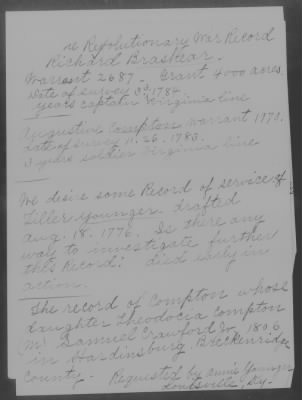 re Revolutionary War Record
Richard Brashear.
Warrant 2687 - Grant 4000 acres.
Date of survey 1784
years captain Virginia line
Augustine Compton warrant
date of survey 11. 26. 1783.
3 years soldier Virginia line
We desire some Record of service of
Tiller Younger drafted
Aug. 18. 1776. Is there any
way to investigate further
this Record? died early in
action.
The record of Compton whose
daughter Theodocia Compton
(m) Samuel Crawford Jr, 1806
in Hardinsburg, Breckenridge
County - Requested by Annie Younger
Ky.